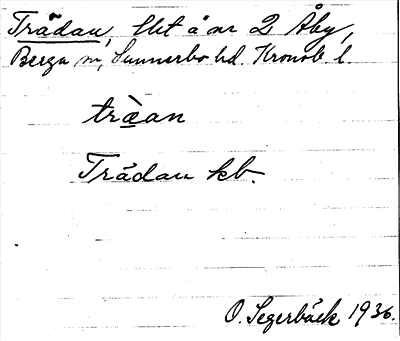 Trådan, lht å ar 2 Åby,
Berga sn, Sunnerbo hd. Kronob. l.
träan
Trådan kb.
O. Segerbäck 1936.